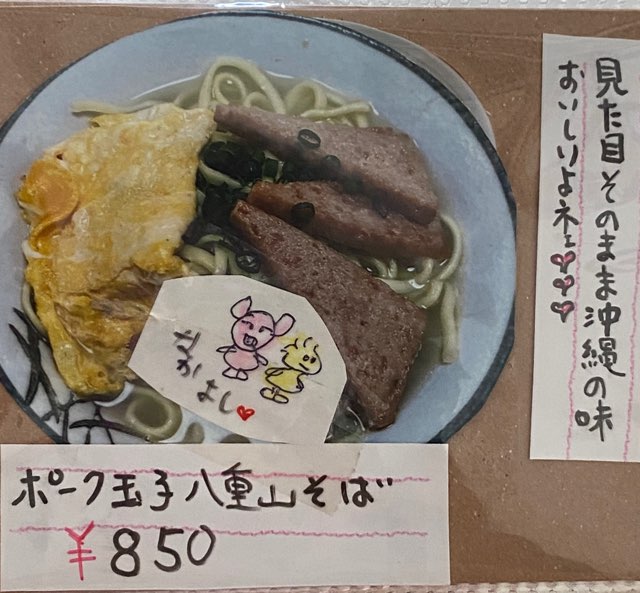 見た目そのまま沖縄の味
おいしいよネェ♥♥♥
なかよし♥
ポーク玉子八重山そば
¥850